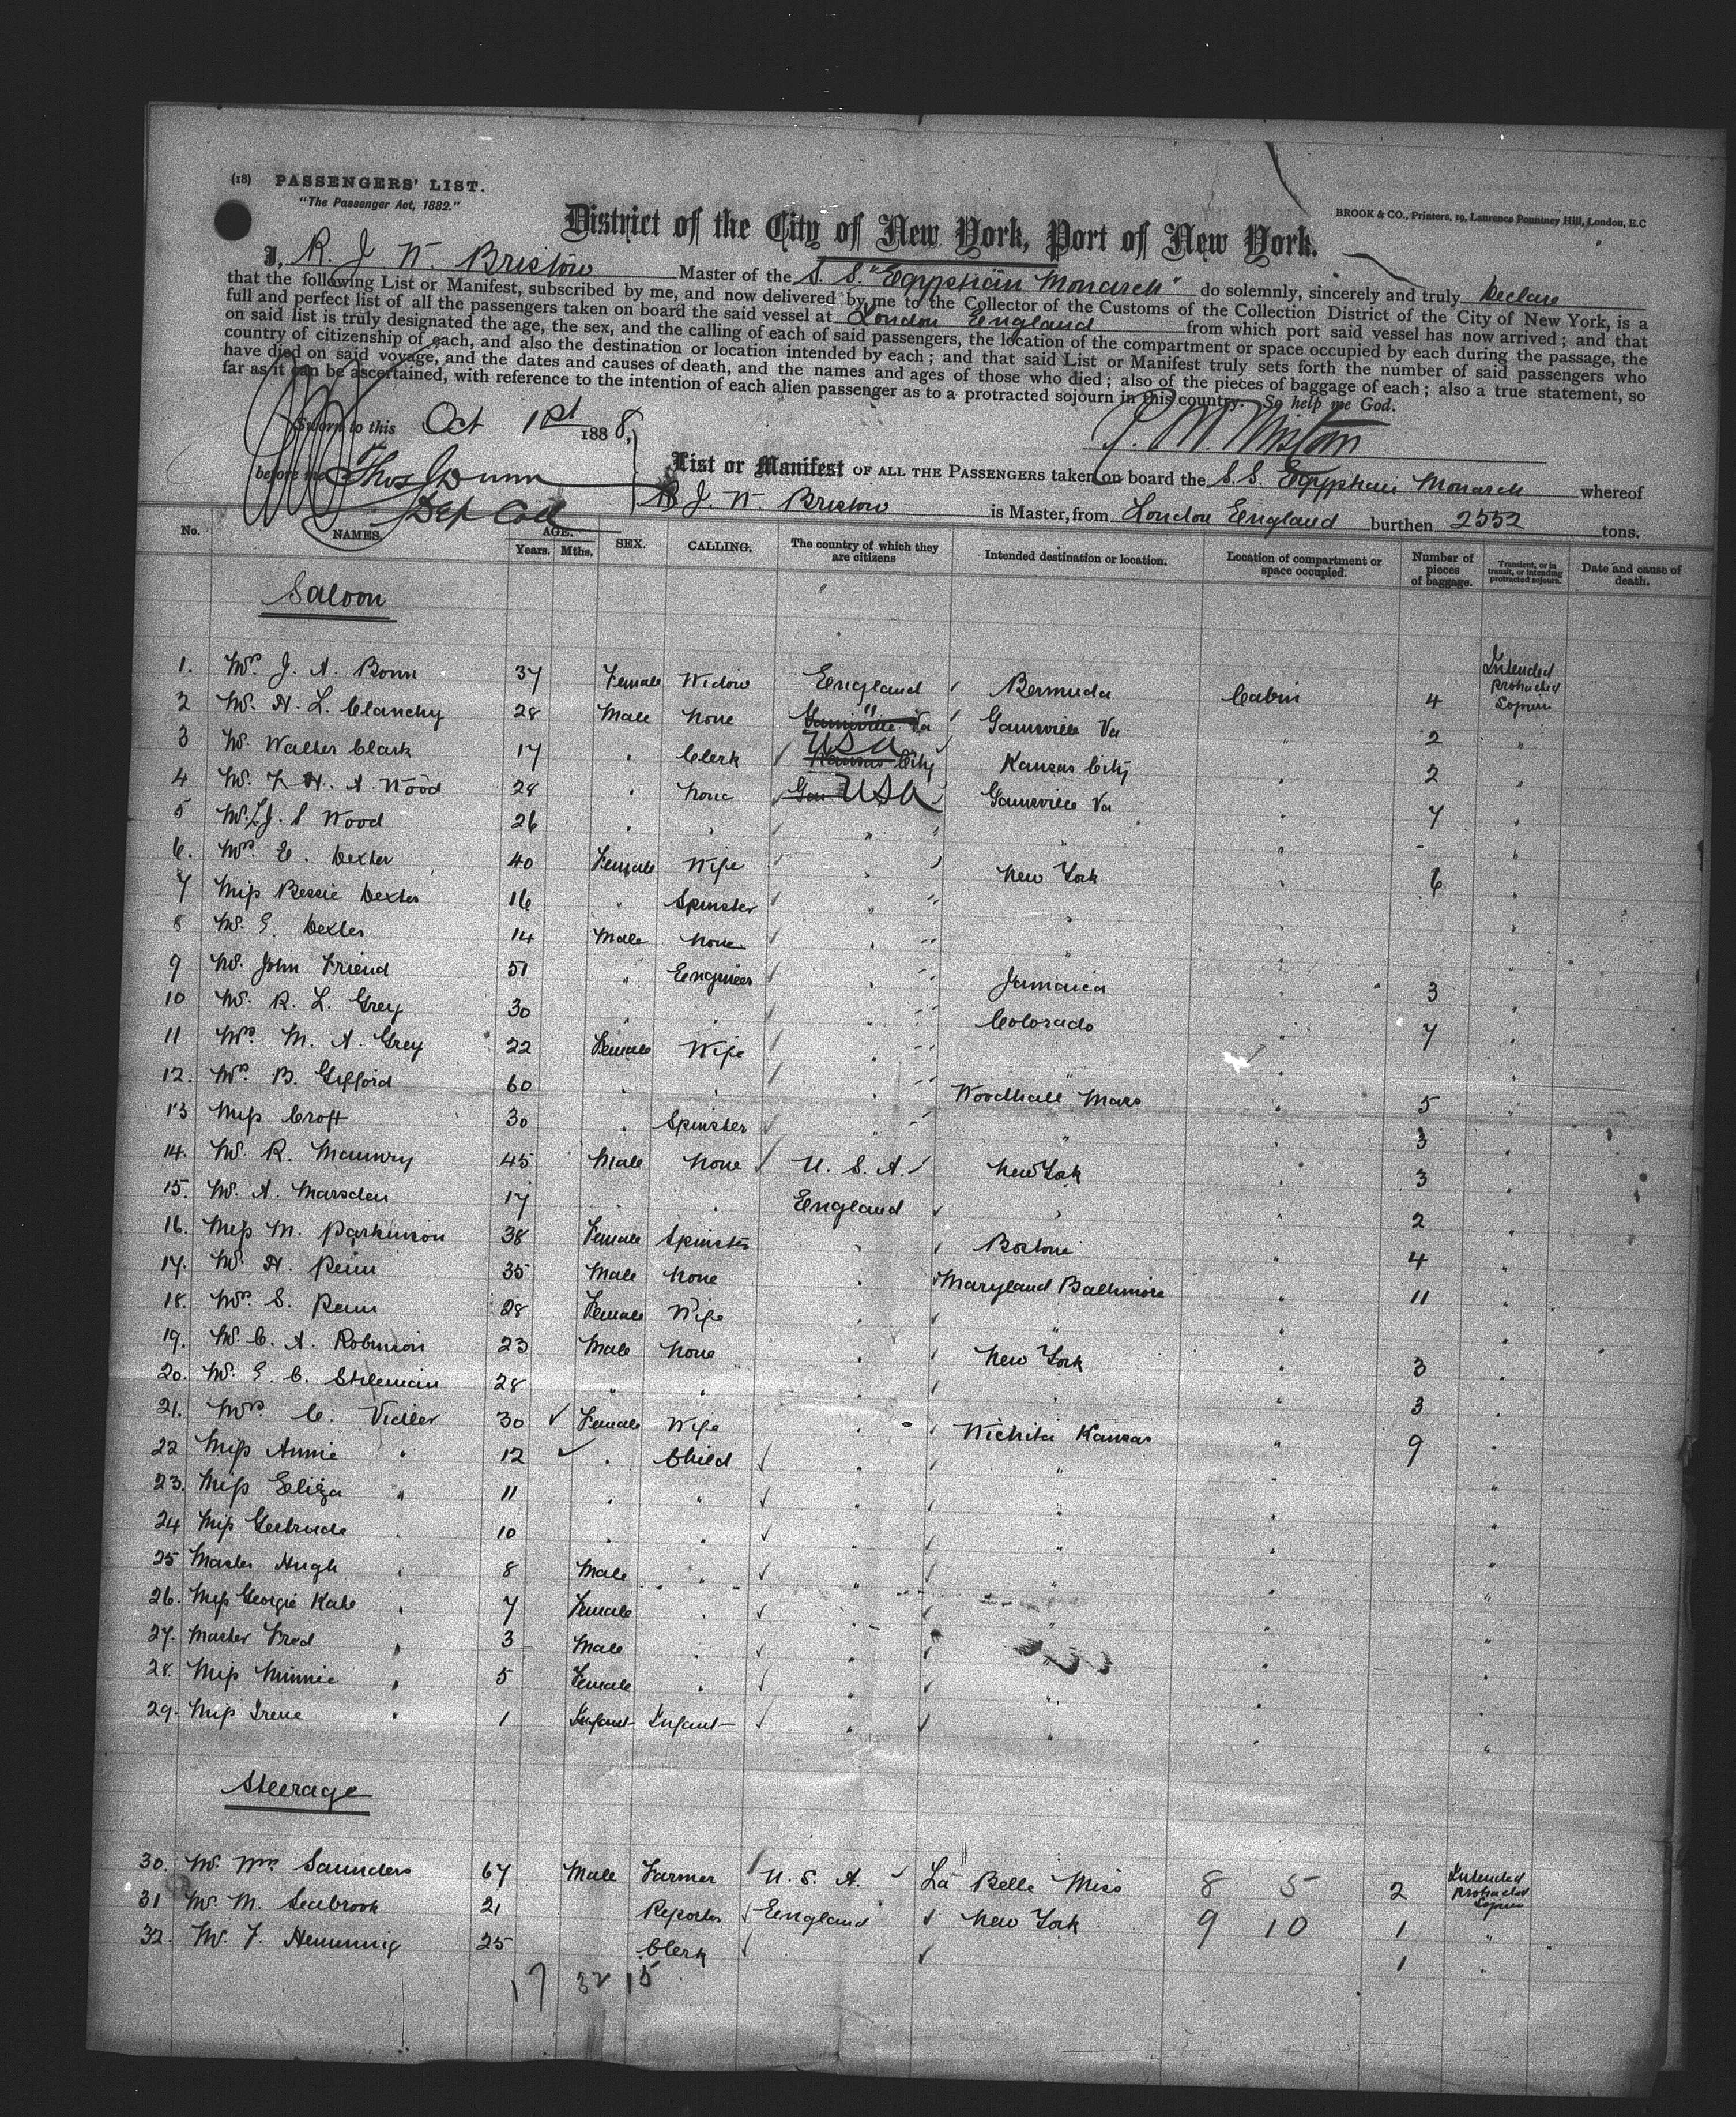 (18) PASSENGERS' LIST.
"The Passenger Act, 1882."
BROOK & CO., Printers, 19, Laurence Pountney Hill, London, E.C
District of the City of New York, Port of New York.
I, R. J. W. Bristow Master of the S. S. "Egyptian Monarch" do solemnly, sincerely and truly Declare
that the following List or Manifest, subscribed by me, and now delivered by me to the Collector of the Customs of the Collection District of the City of New York, is a
full and perfect list of all the passengers taken on board the said vessel at London England from which port said vessel has now arrived; and that
on said list is truly designated the age, the sex, and the calling of each of said passengers, the location of the compartment or space occupied by each during the passage, the
country of citizenship of each, and also the destination or location intended by each; and that said List or Manifest truly sets forth the number of said passengers who
have died on said voyage, and the dates and causes of death, and the names and ages of those who died; also of the pieces of baggage of each; also a true statement, so
far as it can be ascertained, with reference to the intention of each alien passenger as to a protracted sojourn in this country. So help me God.
Sworn to this Oct 1st 1888,
before me Thos Dunn
Dep Coll
List or Manifest OF ALL THE PASSENGERS taken on board the S.S. Egyptian Monarch whereof
R. J. W. Bristow is Master, from London England burthen 2552 tons.
No. NAMES. AGE. Years. Mths. SEX. CALLING. The country of which they are citizens Intended destination or location. Location of compartment or space occupied. Number of pieces of baggage. Transient, or in transit, or intending protracted sojourn. Date and cause of death.
Saloon
1. Mrs J. A. Bonn 37 Female Widow England Bermuda Cabin 4 Intended protracted Sojourn
2 Mr. H. L. Clanchy 28 Male None " Gainsville Va 2 "
3 Mr. Walter Clark 17 " Clerk USA Kansas City " 2 "
4 Mr. F. H. A. Wood 28 " None USA Gainsville Va " 7 "
5 Mr. J. S Wood 26 " " " " " "
6. Mrs. E. Dexter 40 Female Wife " New York " 6 "
7 Miss Bessie Dexter 16 " Spinster " " "
8 Mr. E. Dexter 14 Male None " " "
9 Mr. John Friend 51 " Engineer " Jamaica " 3 "
10 Mr. R. L. Grey 30 " " " Colorado " 7 "
11 Mrs. M. A. Grey 22 Female Wife " " " "
12. Mrs. B. Gifford 60 " " " Woodhall Mass " 5 "
13 Miss Croft 30 " Spinster " " " 3 "
14. Mr. R. Maunry 45 Male None U. S. A. New York " 3 "
15. Mr. A. Marsden 17 " " England " " 2 "
16. Miss M. Parkinson 38 Female Spinster " Boston " 4 "
17. Mr. H. Penn 35 Male None " Maryland Baltimore " 11 "
18. Mrs. S. Penn 28 Female Wife " " " "
19. Mr. C. A. Robinson 23 Male None " New York " 3 "
20. Mr. E. C. Stileman 28 " " " " " 3 "
21. Mrs. C. Vidler 30 Female Wife " Wichita Kansas " 9 "
22 Miss Annie " 12 " Child " " " "
23. Miss Eliza " 11 " " " " " "
24 Miss Gertrude " 10 " " " " " "
25 Master Hugh " 8 Male " " " " "
26. Miss Georgie Kate " 7 Female " " " " "
27. Master Fred " 3 Male " " " " "
28. Miss Minnie " 5 Female " " " " "
29. Miss Irene " 1 Infant Infant " " " "
Steerage
30. Mr. Wm Saunders 67 Male Farmer U. S. A. La Belle Miss 8 5 2 Intended protracted Sojourn
31 Mr. M. Seabrook 21 Reporter England New York 9 10 1 "
32. Mr. F. Hemming 25 Clerk 1 "
17 32 15